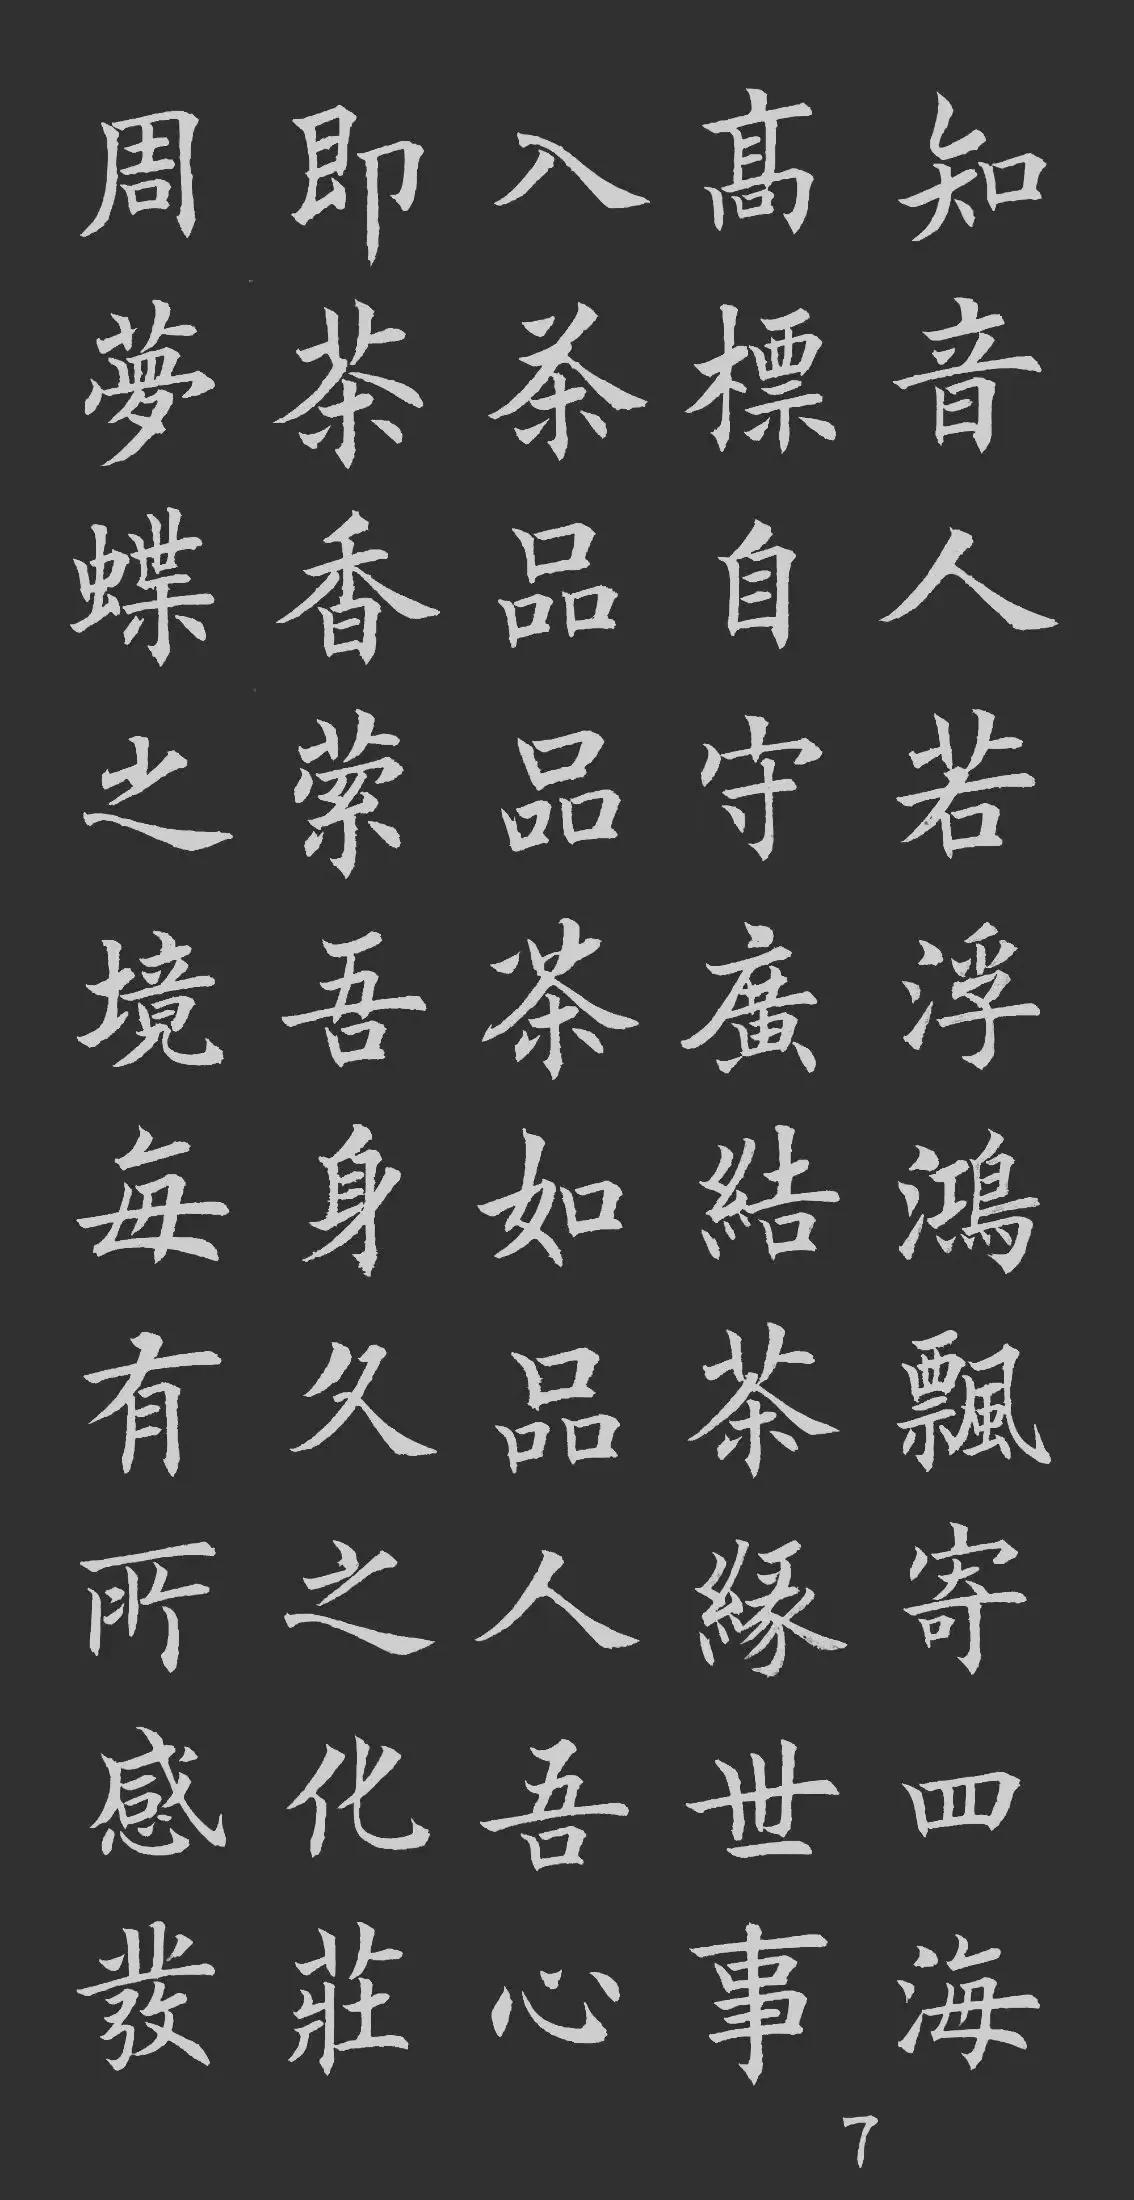 知音人若浮鴻飄寄四海
高標自守廣結茶緣世事
入茶品品茶如品人吾心
即茶香縈吾身久之化莊
周夢蝶之境每有所感發
7